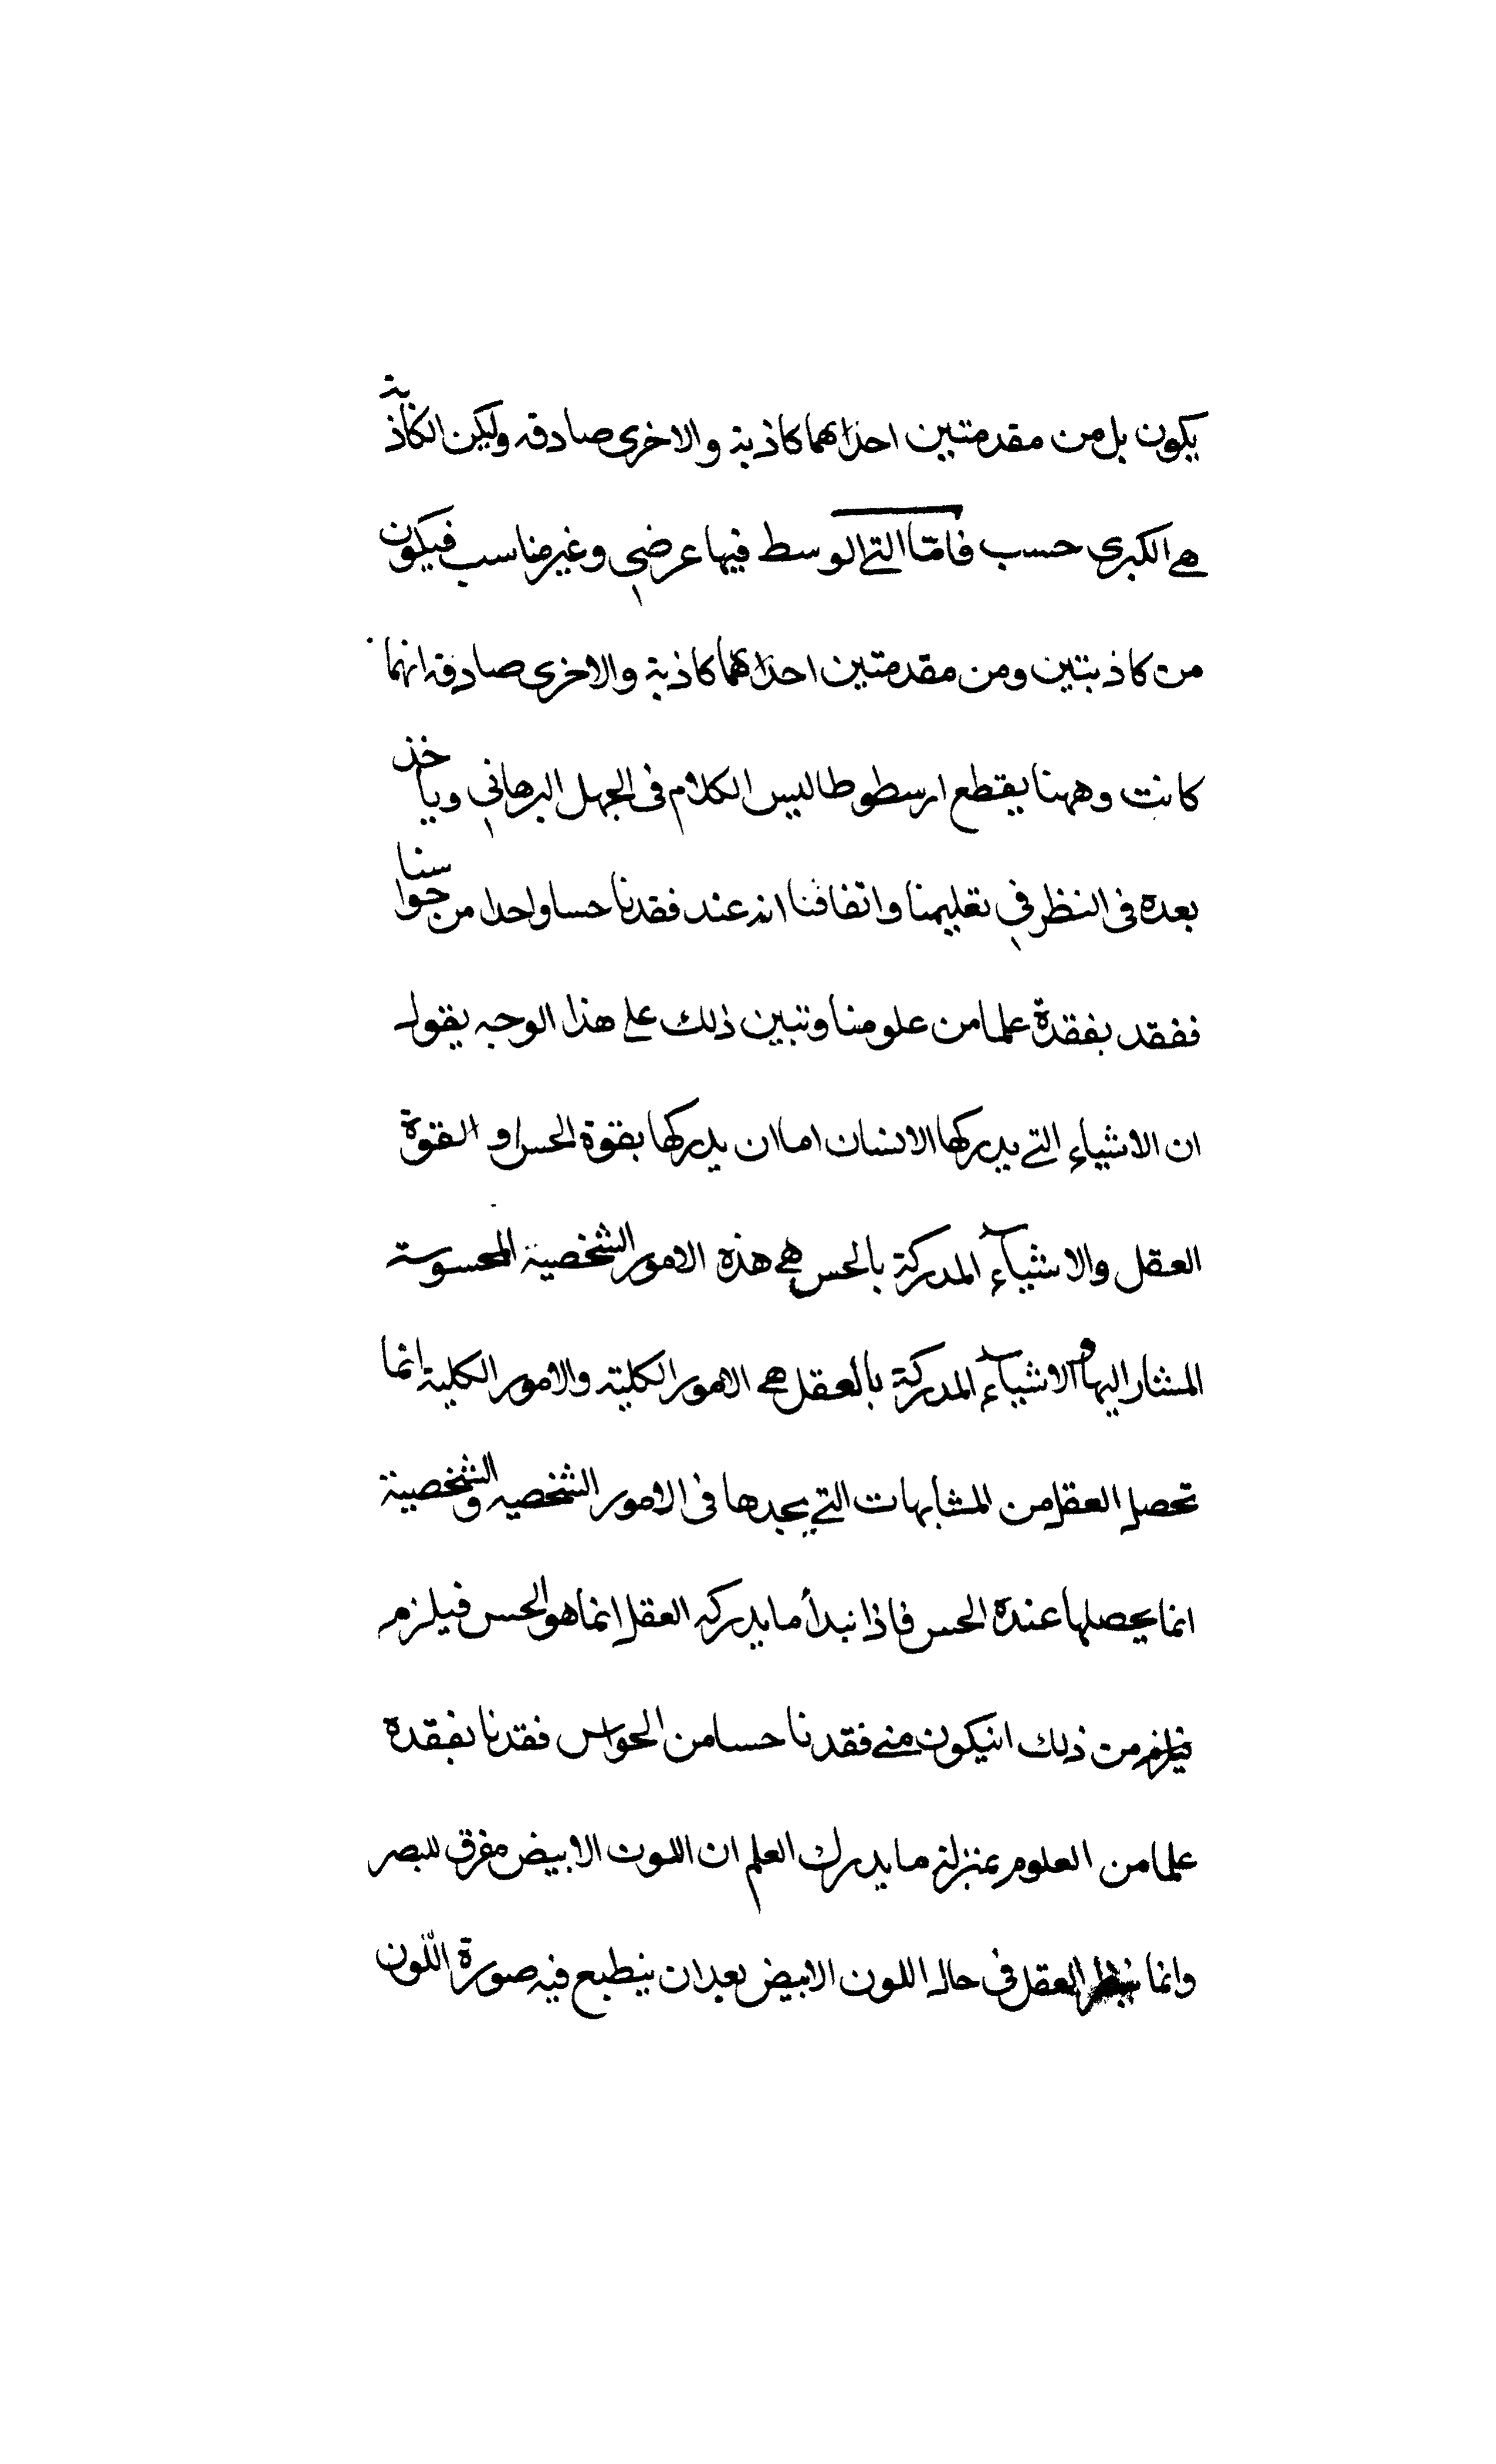 يكون بل من مقدمتين احداهما كاذبة والاخرى صادقه ولكن الكاذبة
هي الكبرى حسب فامّا التي الوسط فيها عرضي وغير مناسب فيكون
من كاذبتين ومن مقدمتين احداهما كاذبة والاخرى صادقه انهما
كانت وههنا يقطع ارسطوطاليس الكلام فى الجهل البرهاني وياخذ
بعده فى النظر في تعليمنا واتفاقنا انه عند فقدنا حسا واحدا من حواسنا
ففقد بفقدة علما من علومنا وتبين ذلك على هذا الوجه يقول
ان الاشياء التي يدركها الانسان اما ان يدركها بقوة الحس او القوة
العقل والاشيآء المدركة بالحس هي هذه الامور الشخصية المحسوسة
المشار اليها والاشيآء المدركة بالعقل هي الامور الكلية والامور الكلية انما
تحصل العقل من المشابهات التي يجدها فى الامور الشخصيه والشخصية
انما يحصلها عندة الحس فاذا نبدأ ما يدركه العقل انما هو الحس فيلزم
فيلزم من ذلك انيكون متى فقدنا حسا من الحواس فقدنا بفقدة
علما من العلوم بمنزلة ما يدرك العلم ان اللون الابيض مفرق للبصر
وانما ينظر العقل فى حال اللون الابيض بعد ان ينطبع فيه صورة اللّون